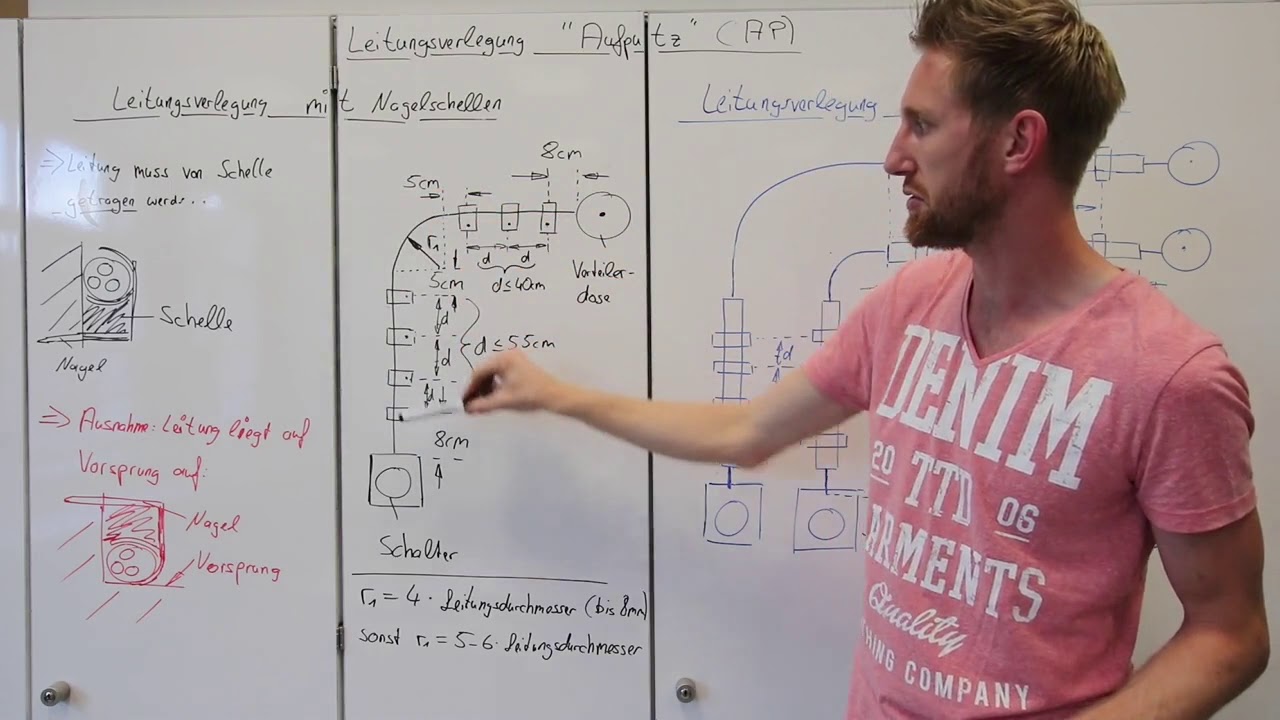 Leitungsverlegung "Aufputz" (AP)
Leitungsverlegung mit Nagelschellen
=> Leitung muss von Schelle
getragen werds..
Schelle
Nagel
=> Ausnahme: Leitung liegt auf
Vorsprung auf:
Nagel
Vorsprung
8cm
5cm
r₁
5cm
d
d
d≤40cm
Verteiler-
dose
d
d
d
d ≤ 55cm
8cm
Schalter
r₁ = 4 · Leitungsdurchmesser (bis 8mm)
sonst r₁ = 5-6 · Leitungsdurchmesser
Leitungsverlegung
d
DENIM
20 TTD 06
ARMENTS
Quality
THING COMPANY